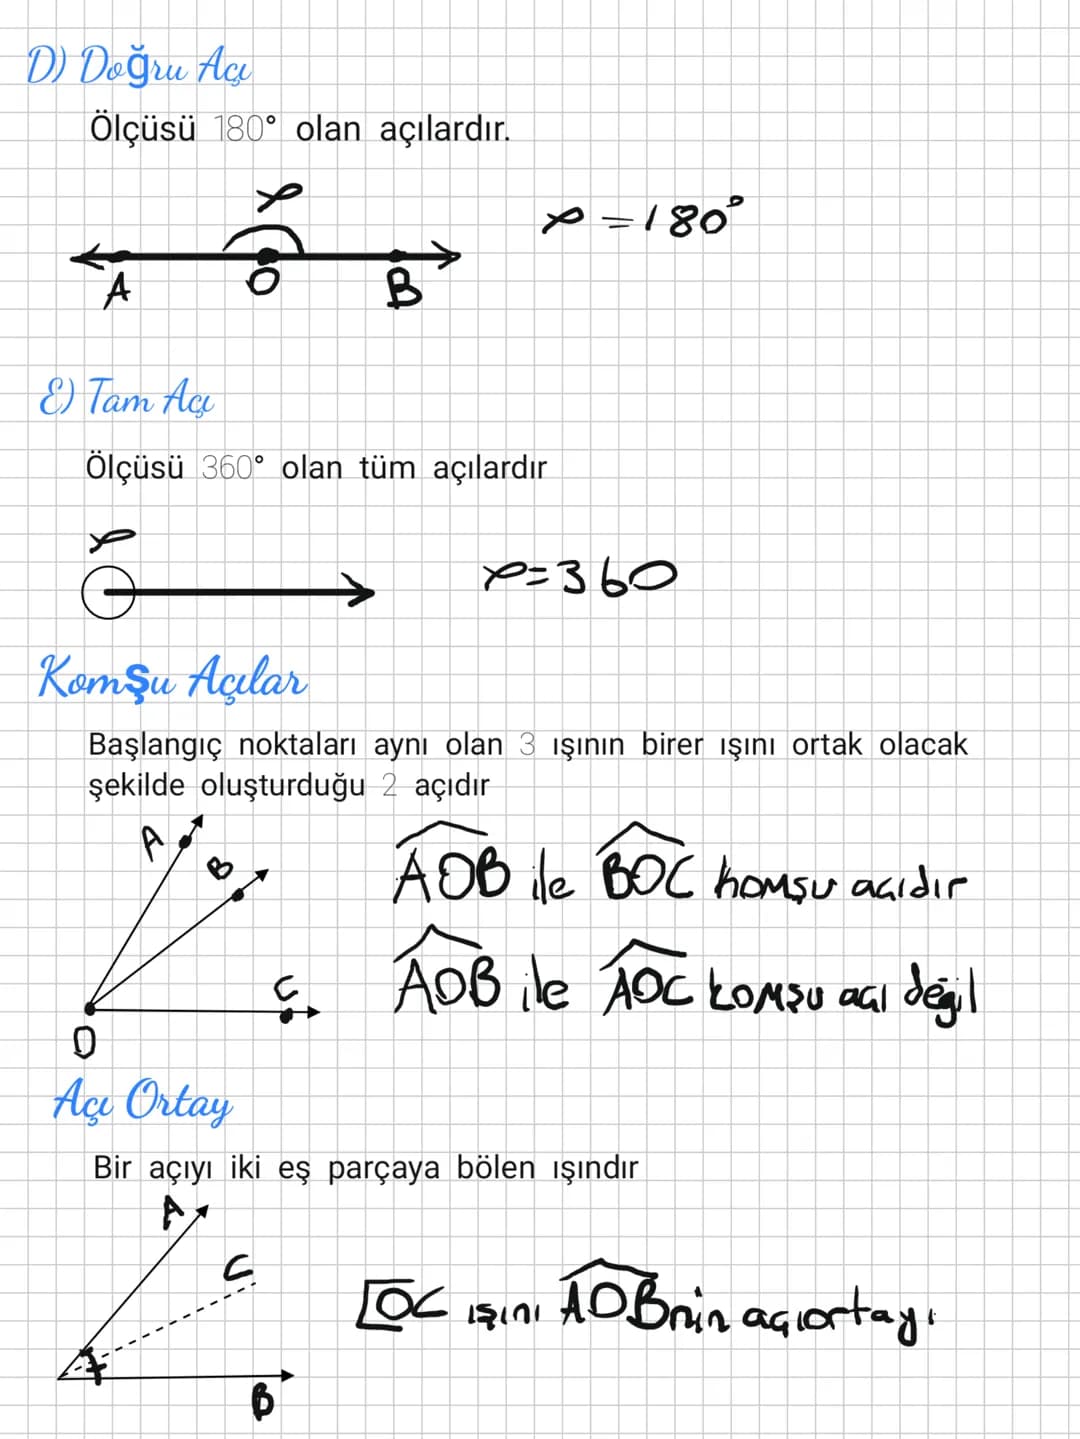 D) Doğru Açı
Ölçüsü 180° olan açılardır.
α
α = 180°
A O B
E) Tam Açı
Ölçüsü 360° olan tüm açılardır
α
α=360
Komşu Açılar
Başlangıç noktaları aynı olan 3 ışının birer ışını ortak olacak
şekilde oluşturduğu 2 açıdır
A
B
C
O
AOB ile BOC komşu açıdır
AOB ile AOC komşu açı değil
Açı Ortay
Bir açıyı iki eş parçaya bölen ışındır
A
C
B
[OC ışını AOBnin açıortayı